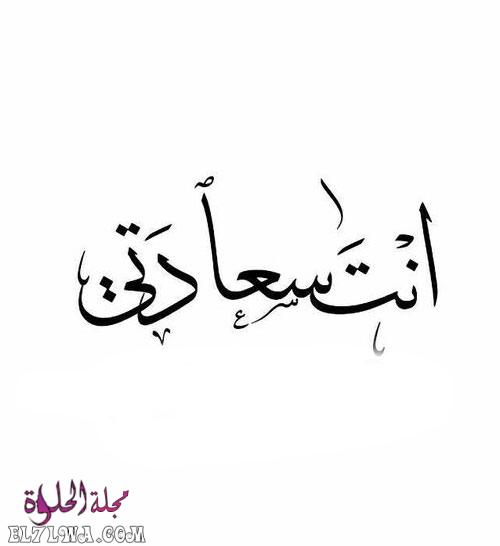 انْتَ سعادَتي
مجلة الحلوة
EL7L9WA.COM